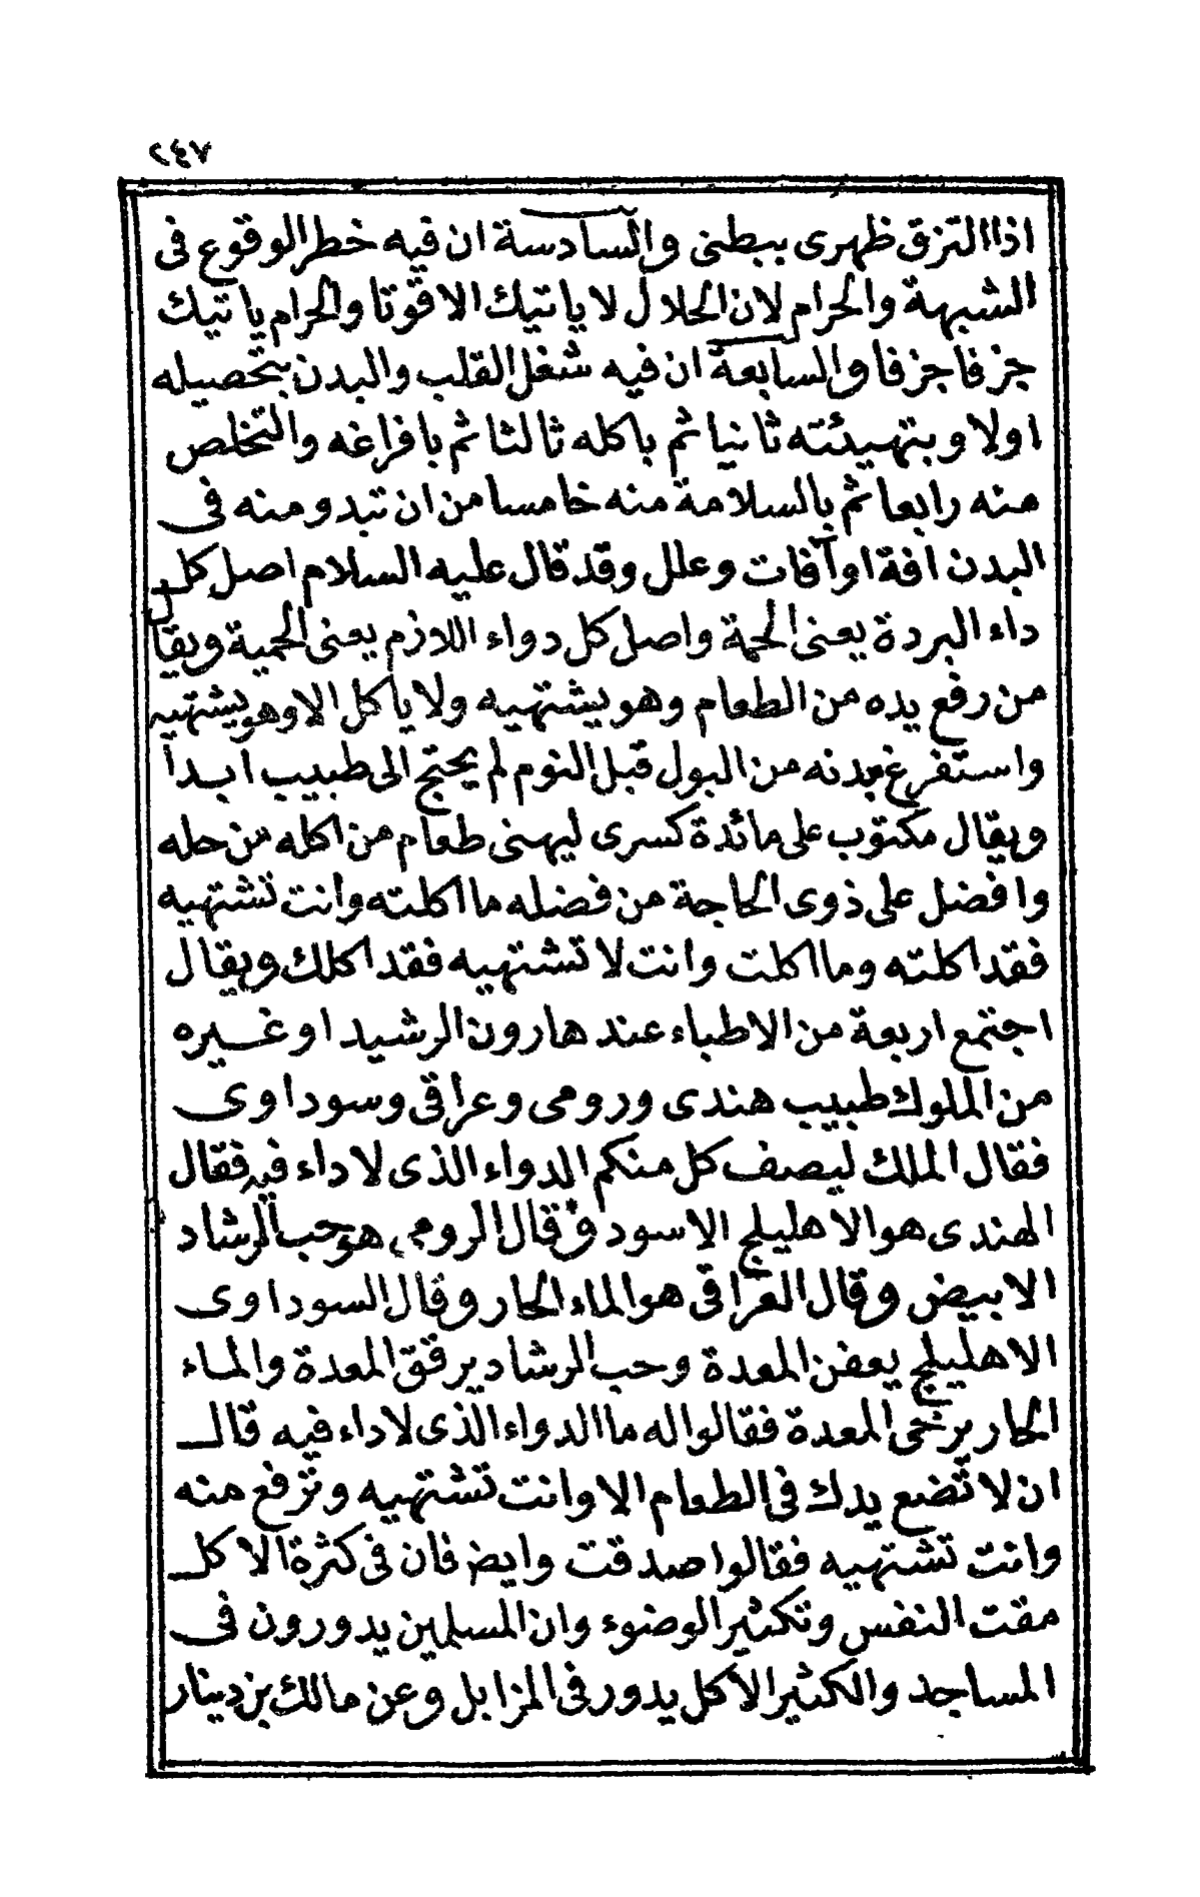 ٢٤٧
اذا التزق ظهرى ببطنى والسادسة ان فيه خطر الوقوع فى
الشبهة والحرام لان الحلال لا ياتيك الا قوتا والحرام ياتيك
جزفا جزفا والسابعة ان فيه شغل القلب والبدن بتحصيله
اولا وبتهيئته ثانيا ثم باكله ثالثا ثم بافراغه والتخلص
منه رابعا ثم بالسلامة منه خامسا من ان تبدو منه فى
البدن افة او آفات وعلل وقد قال عليه السلام اصل كل
داء البردة يعنى الحمة واصل كل دواء اللازم يعنى الحمية ويقال
من رفع يده من الطعام وهو يشتهيه ولا ياكل الا وهو يشتهيه
واستفرغ بدنه من البول قبل النوم لم يحتج الى طبيب ابدا
ويقال مكتوب على مائدة كسرى ليهنى طعام من اكله من حله
وافضل على ذوى الحاجة من فضله ما اكلته وانت تشتهيه
فقد اكلته وما اكلت وانت لا تشتهيه فقد اكلك ويقال
اجتمع اربعة من الاطباء عند هارون الرشيد او غيره
من الملوك طبيب هندى ورومى وعراقى وسوداوى
فقال الملك ليصف كل منكم الدواء الذى لا داء فيه فقال
الهندى هو الاهليلج الاسود وقال الرومى هو حب الرشاد
الابيض وقال العراقى هو الماء الحار وقال السوداوى
الاهليلج يعفن المعدة وحب الرشاد يرقق المعدة والماء
الحار يرخى المعدة فقالوا له ما الدواء الذى لا داء فيه قال
ان لا تضع يدك فى الطعام الا وانت تشتهيه وترفع منه
وانت تشتهيه فقالوا صدقت وايض فان فى كثرة الاكل
مقت النفس وتكثير الوضوء وان المسلمين يدورون فى
المساجد والكثير الاكل يدور فى المزابل وعن مالك بن دينار